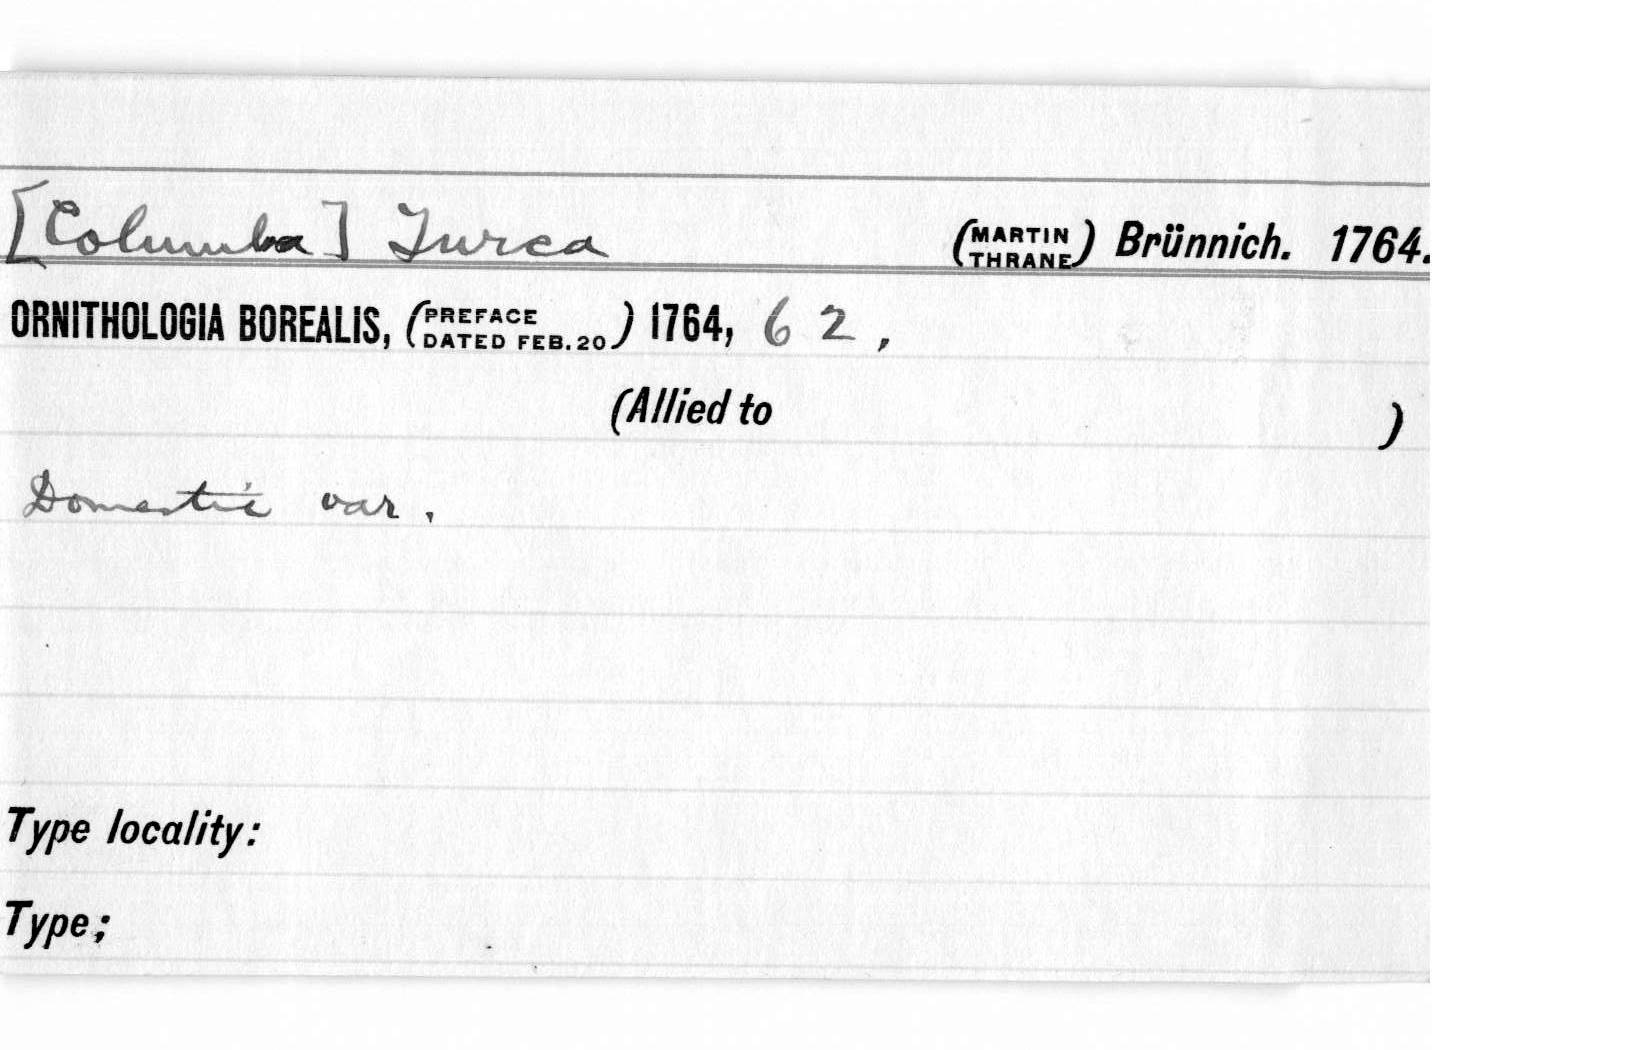 [Columba] Turca (MARTIN THRANE) Brünnich. 1764.
ORNITHOLOGIA BOREALIS, (PREFACE DATED FEB. 20) 1764, 62,
(Allied to )
Domestic var.
Type locality:
Type;